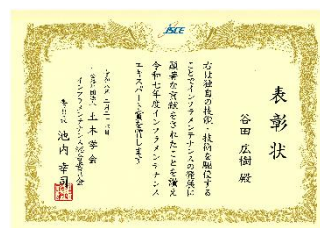 JSCE
表彰状
谷田 広樹 殿
右は独自の技術・技術を駆使する
ことでインフラメンテナンスの発展に
顕著な貢献をされたことを讃え
令和七年度インフラメンテナンス
エキスパート賞を贈します
公益社団法人 土木学会
インフラメンテナンス総合委員会
委員長 池内 幸司